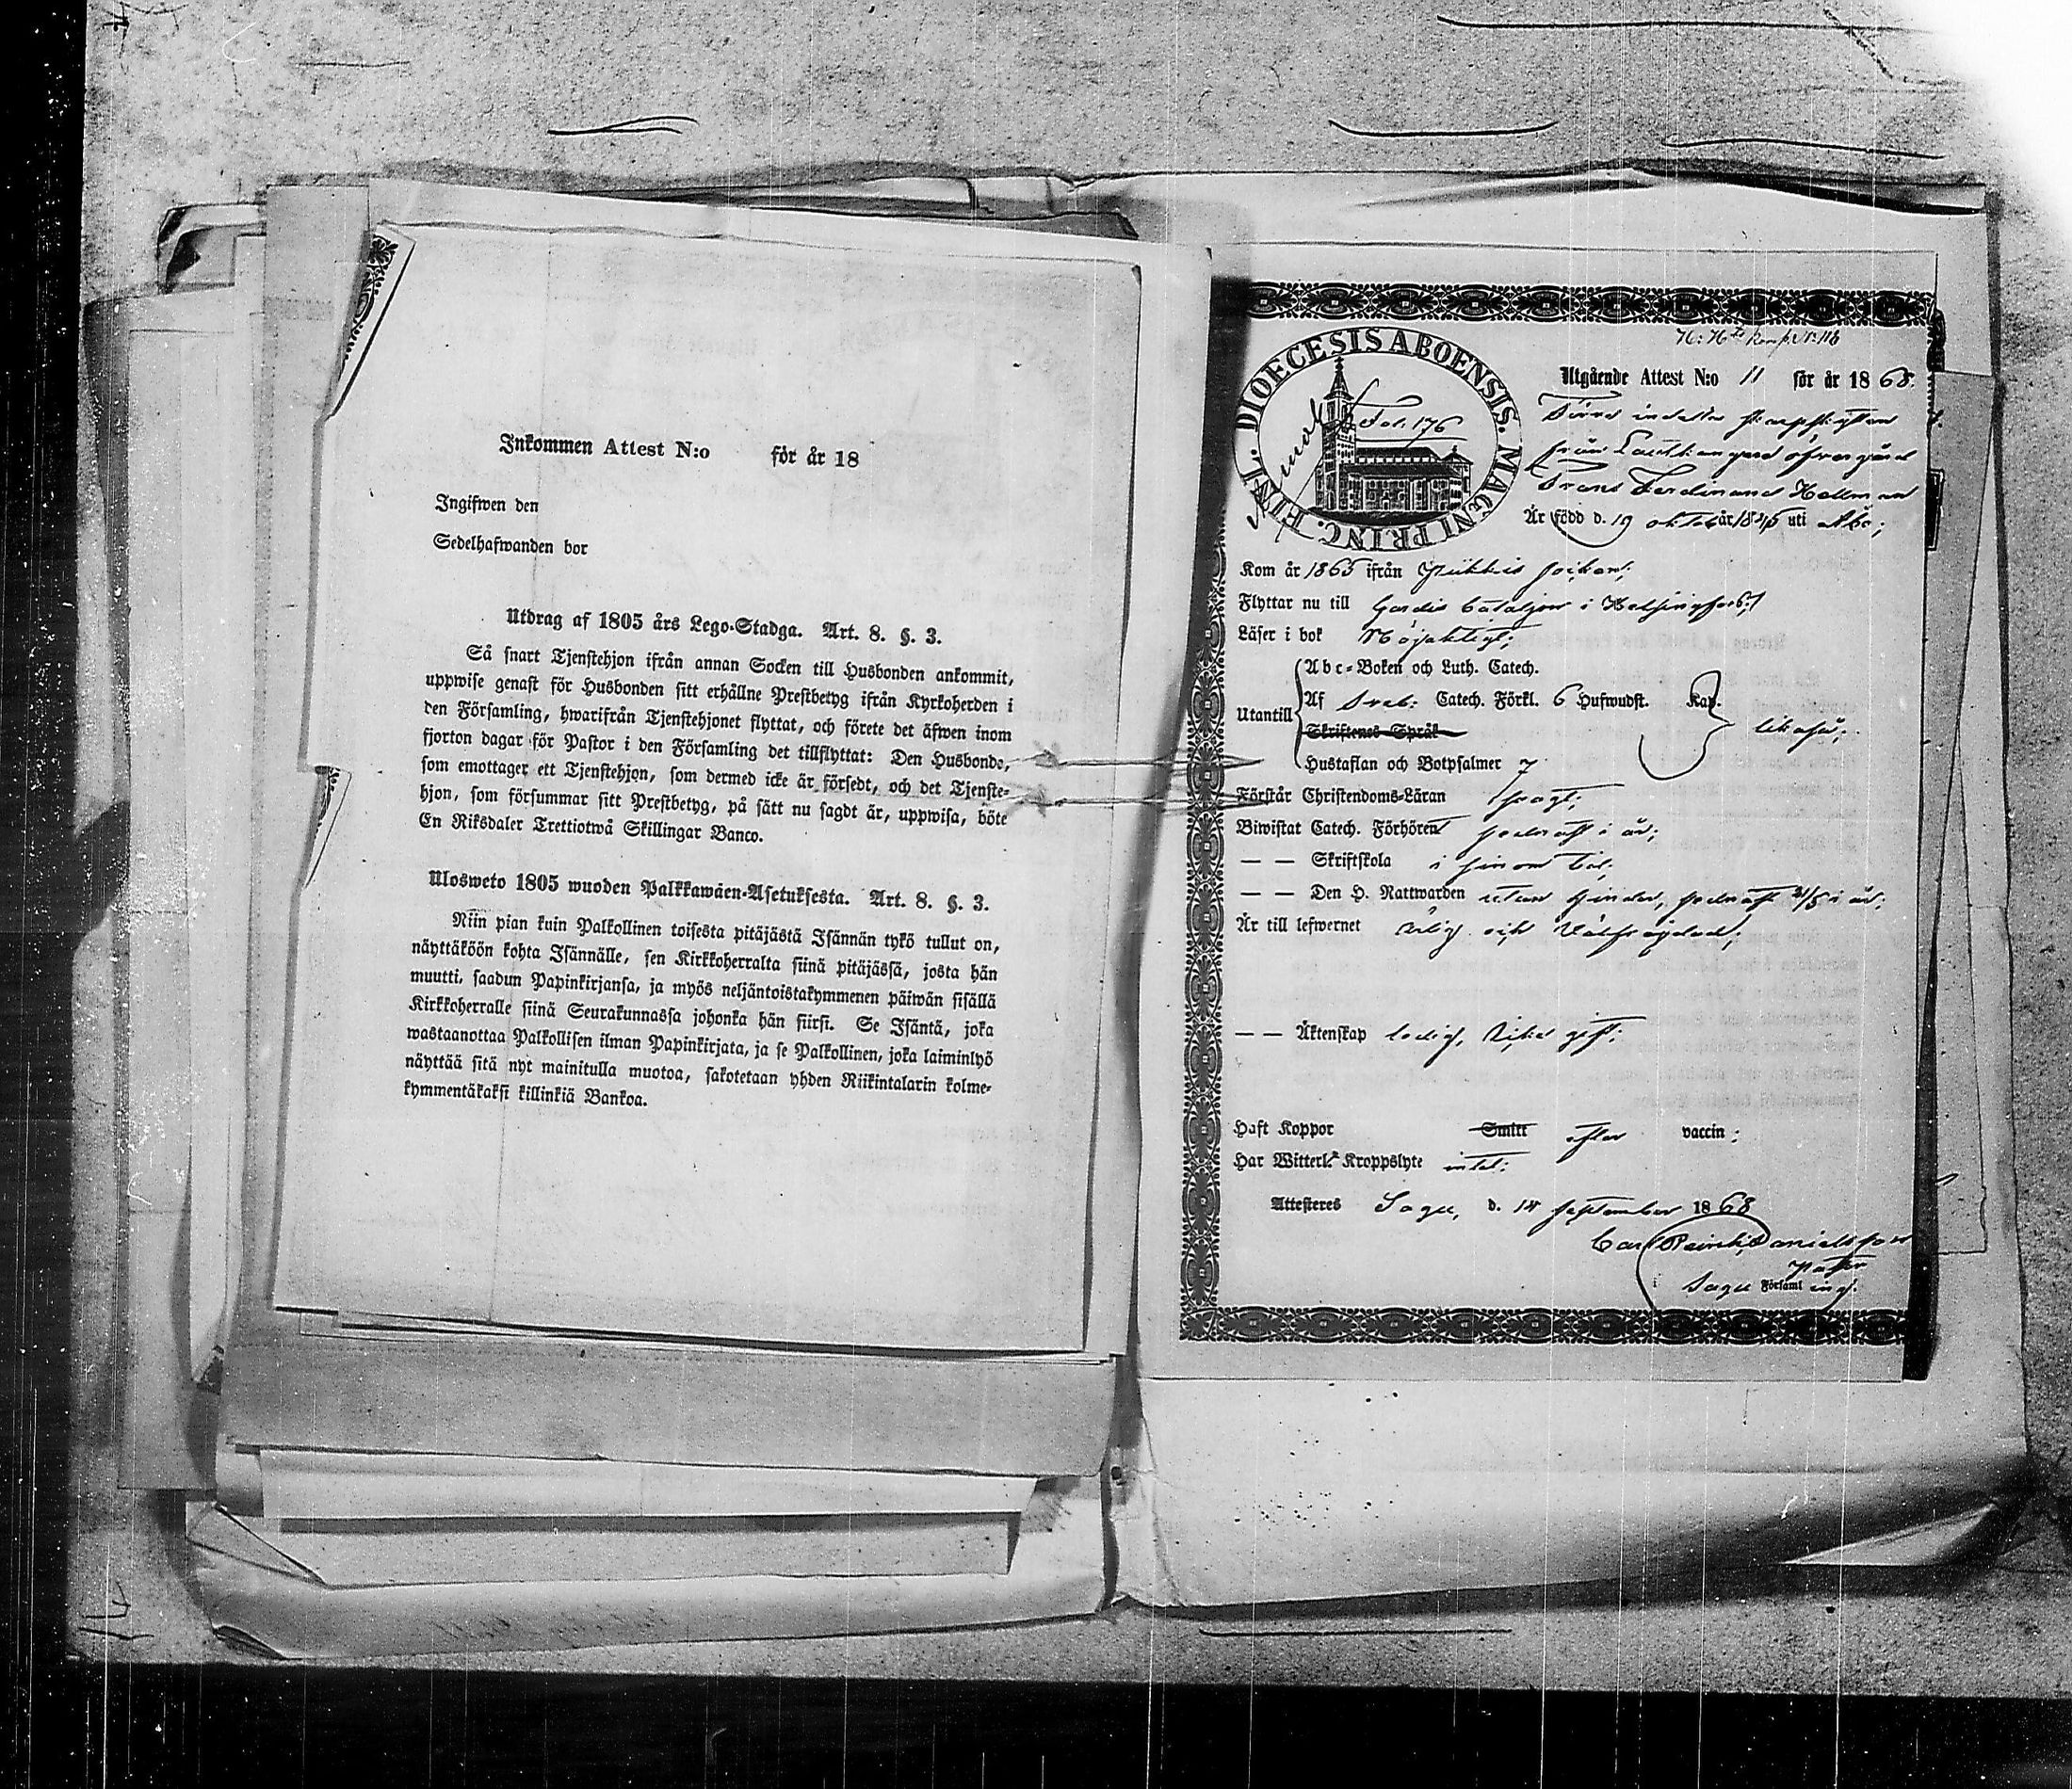 Inkommen Attest N:o för år 18
Ingifwen den
Sedelhafwanden bor
Utdrag af 1805 års Lego-Stadga. Art. 8. §. 3.
Så snart Tjenstehjon ifrån annan Socken till Husbonden ankommit,
uppwise genast för Husbonden sitt erhållne Prestbetyg ifrån Kyrkoherden i
den Församling, hwarifrån Tjenstehjonet flyttat, och förete det äfwen inom
fjorton dagar för Pastor i den Församling det tillflyttat: Den Husbonde,
som emottager ett Tjenstehjon, som dermed icke är försedt, och det Tjenste-
hjon, som försummar sitt Prestbetyg, på sätt nu sagdt är, uppwisa, böte
En Riksdaler Trettiotwå Skillingar Banco.
Ulosweto 1805 wuoden Palkkawäen-Asetuksesta. Art. 8. §. 3.
Niin pian kuin Palkollinen toisesta pitäjästä Isännän tykö tullut on,
näyttäköön kohta Isännälle, sen Kirkkoherralta siinä pitäjässä, josta hän
muutti, saadun Papinkirjansa, ja myös neljäntoistakymmenen päiwän sisällä
Kirkkoherralle siinä Seurakunnassa johonka hän siirsi. Se Isäntä, joka
wastaanottaa Palkollisen ilman Papinkirjata, ja se Palkollinen, joka laiminlyö
näyttää sitä nyt mainitulla muotoa, sakotetaan yhden Riikintalarin kolme-
kymmentäkaksi killinkiä Bankoa.
DIOECESIS ABOENSIS. MAGNI PRINC. FINL.
Fol. 176
Utgående Attest N:o 11 för år 1868.
från öfvergård
Frans Ferdinand Hellman
Är född d. 19 uti Åbo;
Kom år 1865 ifrån Piikkis socken;
Flyttar nu till Gardis bataljon i Helsingfors;
Läser i bok Nöjaktigt;
Abc-Boken och Luth. Catech.
Utantill Af Sveb: Catech. Förkl. 6 Hufwudst. Kap. likaså;
Skriftenes Språk
Hustaflan och Botpsalmer 7
Förstår Christendoms-Läran svagt;
Biwistat Catech. Förhören sednast i år;
— — Skriftskola i sinom tid;
— — Den H. Nattwarden utan hinder, sednast i år;
Är till lefwernet ärlig och välfrägdad;
— — Äktenskap ledig, icke gift;
Haft Koppor Smitt efter vaccin;
Har Witterl. Kroppslyte intet;
Attesteres Sagu, d. 14 september 1868
Carl Danielsson
Pastor
i Sagu Församling.